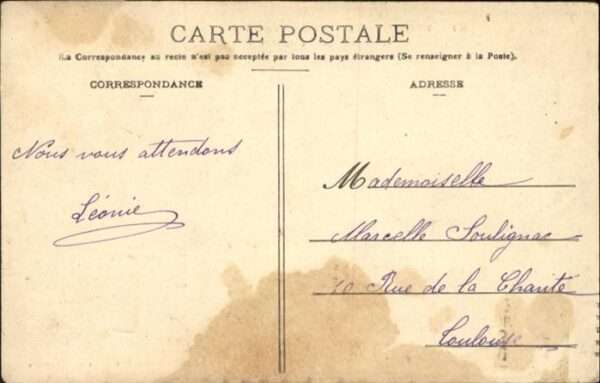 CARTE POSTALE
La Correspondance au recto n'est pas acceptée par tous les pays étrangers (Se renseigner à la Poste).
CORRESPONDANCE
ADRESSE
Nous vous attendons
Léonie
Mademoiselle
Marcelle Soulignac
10 Rue de la Charité
Toulouse